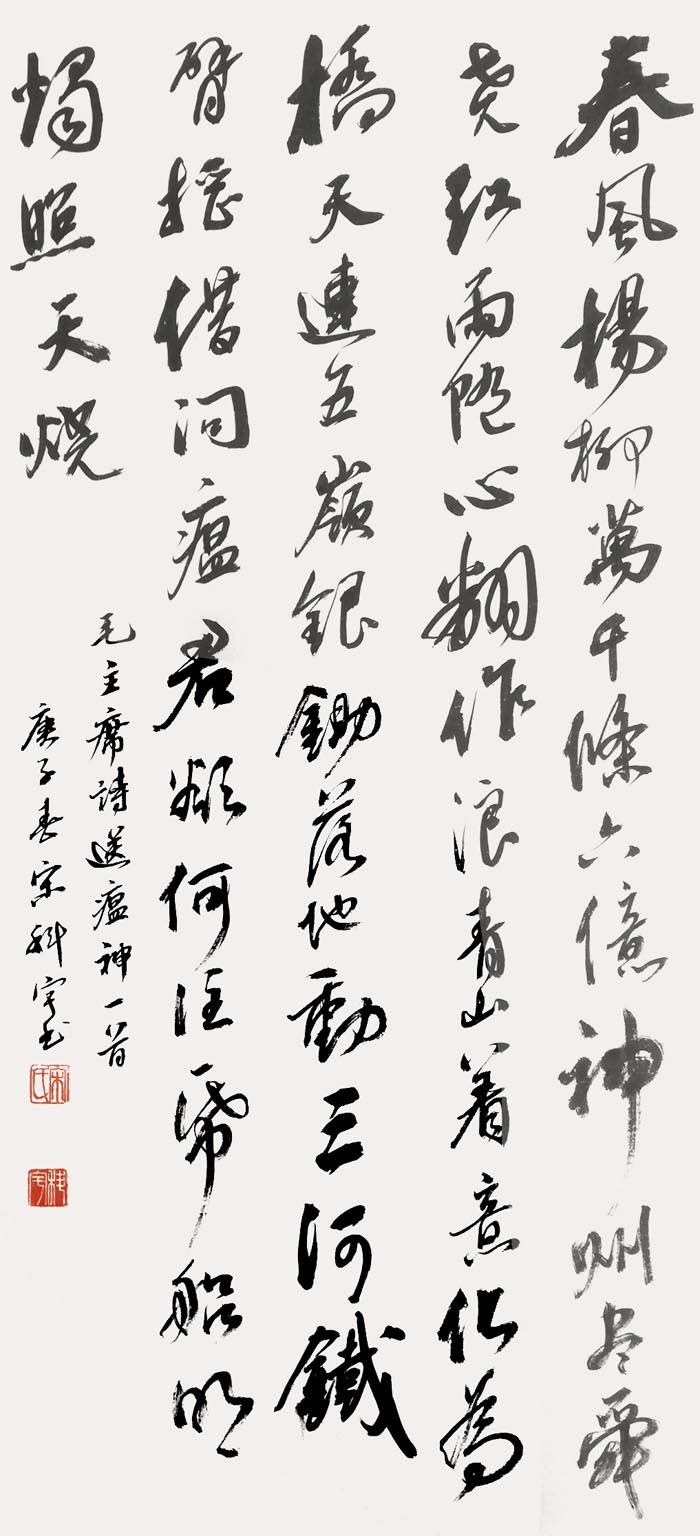 春風楊柳萬千條六億神州尽舜
尧红雨随心翻作浪青山着意化為
橋天連五嶺銀鋤落地動三河鐵
臂摇借问瘟君欲何往帋船明
燭照天烧
毛主席詩送瘟神一首
庚子春宋科宇书
宋氏
科宇